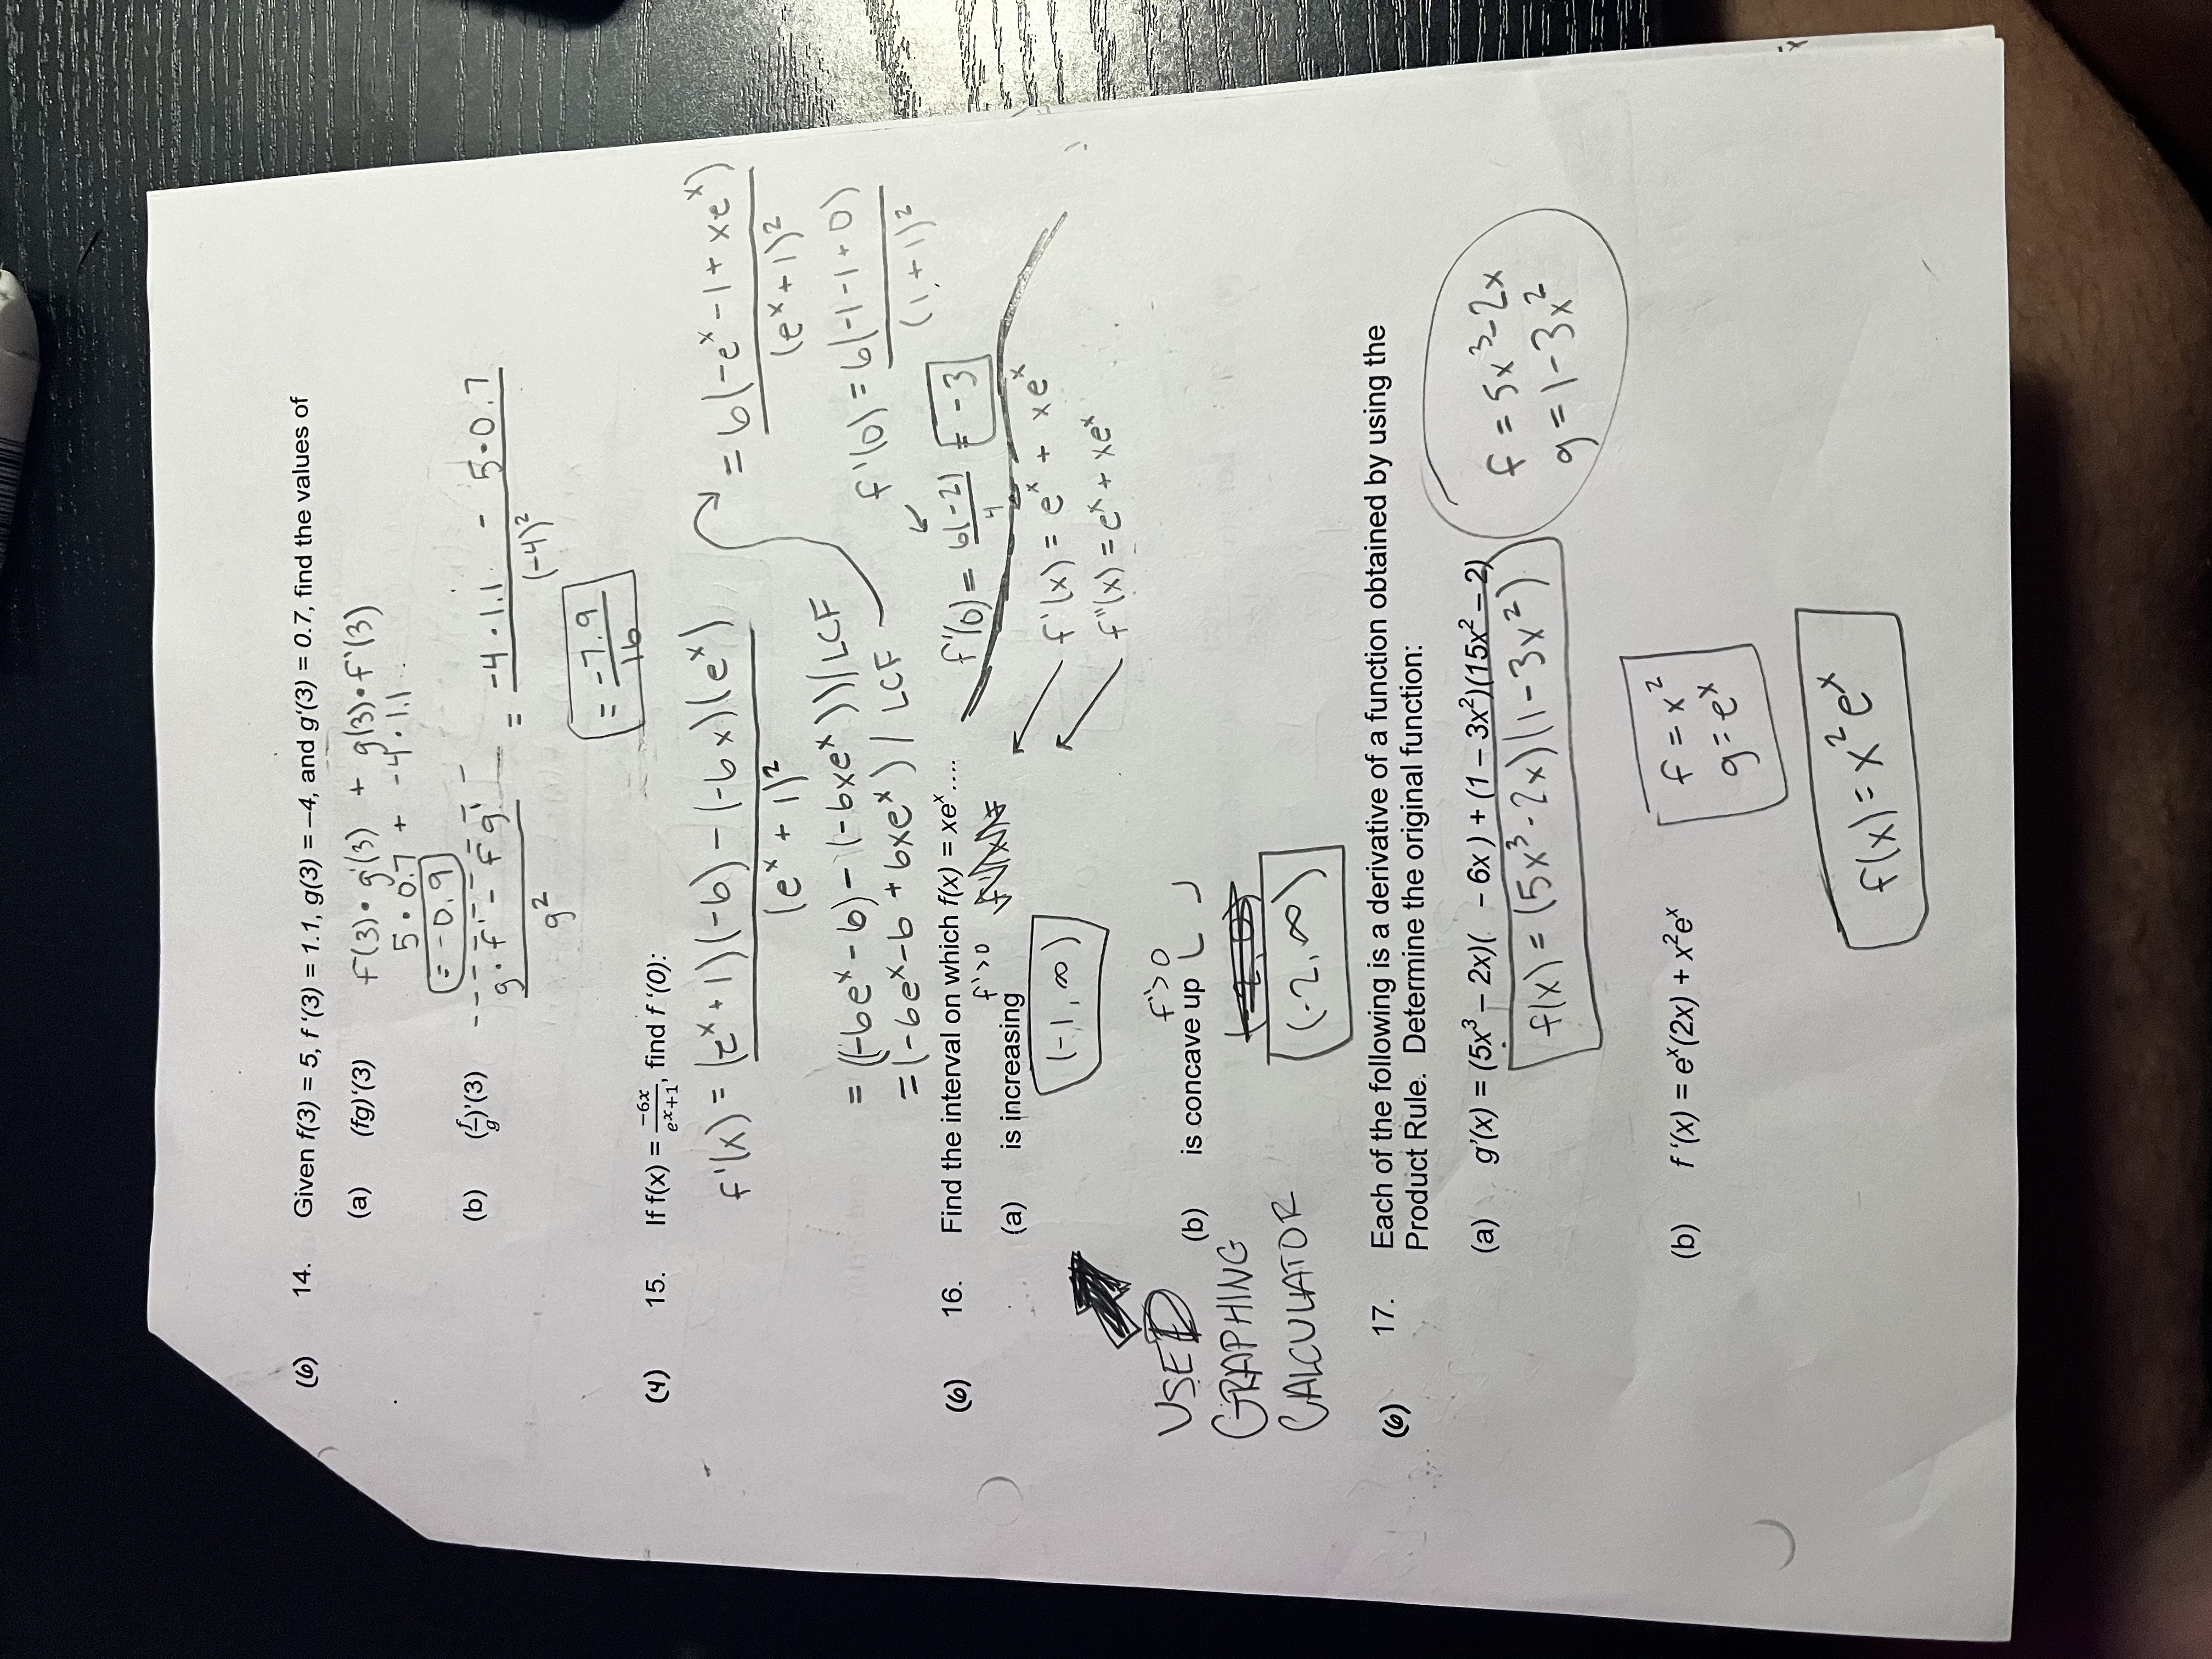 (6) 14. Given f(3) = 5, f '(3) = 1.1, g(3) = –4, and g'(3) = 0.7, find the values of
(a) (fg)'(3) f(3)•g'(3) + g(3)•f'(3)
5•0.7 + -4•1.1
= -0.9
(b) (f/g)'(3) g•f' - fg' / g² = -4•1.1 - 5•0.7 / (-4)²
= -7.9/16
(4) 15. If f(x) = -6x/(eˣ+1), find f '(0):
f'(x) = (eˣ+1)(-6) - (-6x)(eˣ) / (eˣ+1)²
= 6(-eˣ-1+xeˣ) / (eˣ+1)²
= ((-6eˣ-6) - (-6xeˣ))/LCF
= (-6eˣ-6+6xeˣ) / LCF
f'(0) = 6(-1-1+0) / (1+1)²
f'(0) = 6(-2)/4 = -3
(6) 16. Find the interval on which f(x) = xeˣ....
(a) is increasing f'>0
(-1, ∞)
f'(x) = eˣ + xeˣ
f''(x) = eˣ + xeˣ
USED
GRAPHING
CALCULATOR
(b) is concave up f''>0
(-2, ∞)
(6) 17. Each of the following is a derivative of a function obtained by using the
Product Rule. Determine the original function:
(a) g'(x) = (5x³ – 2x)( - 6x ) + (1 – 3x²)(15x² – 2)
f(x) = (5x³-2x)(1-3x²)
f = 5x³-2x
g = 1-3x²
(b) f '(x) = eˣ(2x) + x²eˣ
f = x²
g = eˣ
f(x) = x²eˣ